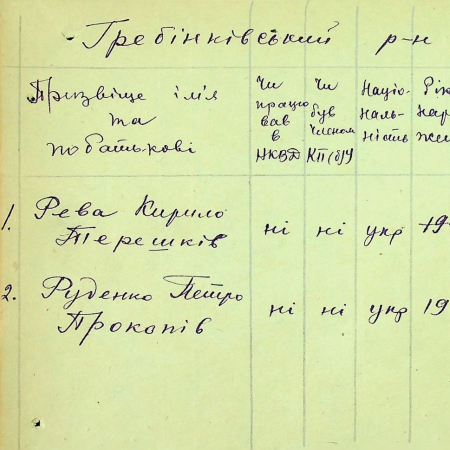 Гребінківський р-н
Призвіще ім'я
та
по батькові
Чи
працю
вав
в
НКВД
Чи
був
членом
КП(б)У
Націо-
наль-
ність
Рік
нар
жен
1. Рева Кирило
Терешків
ні ні укр 19
2. Руденко Петро
Прокопів
ні ні укр 19